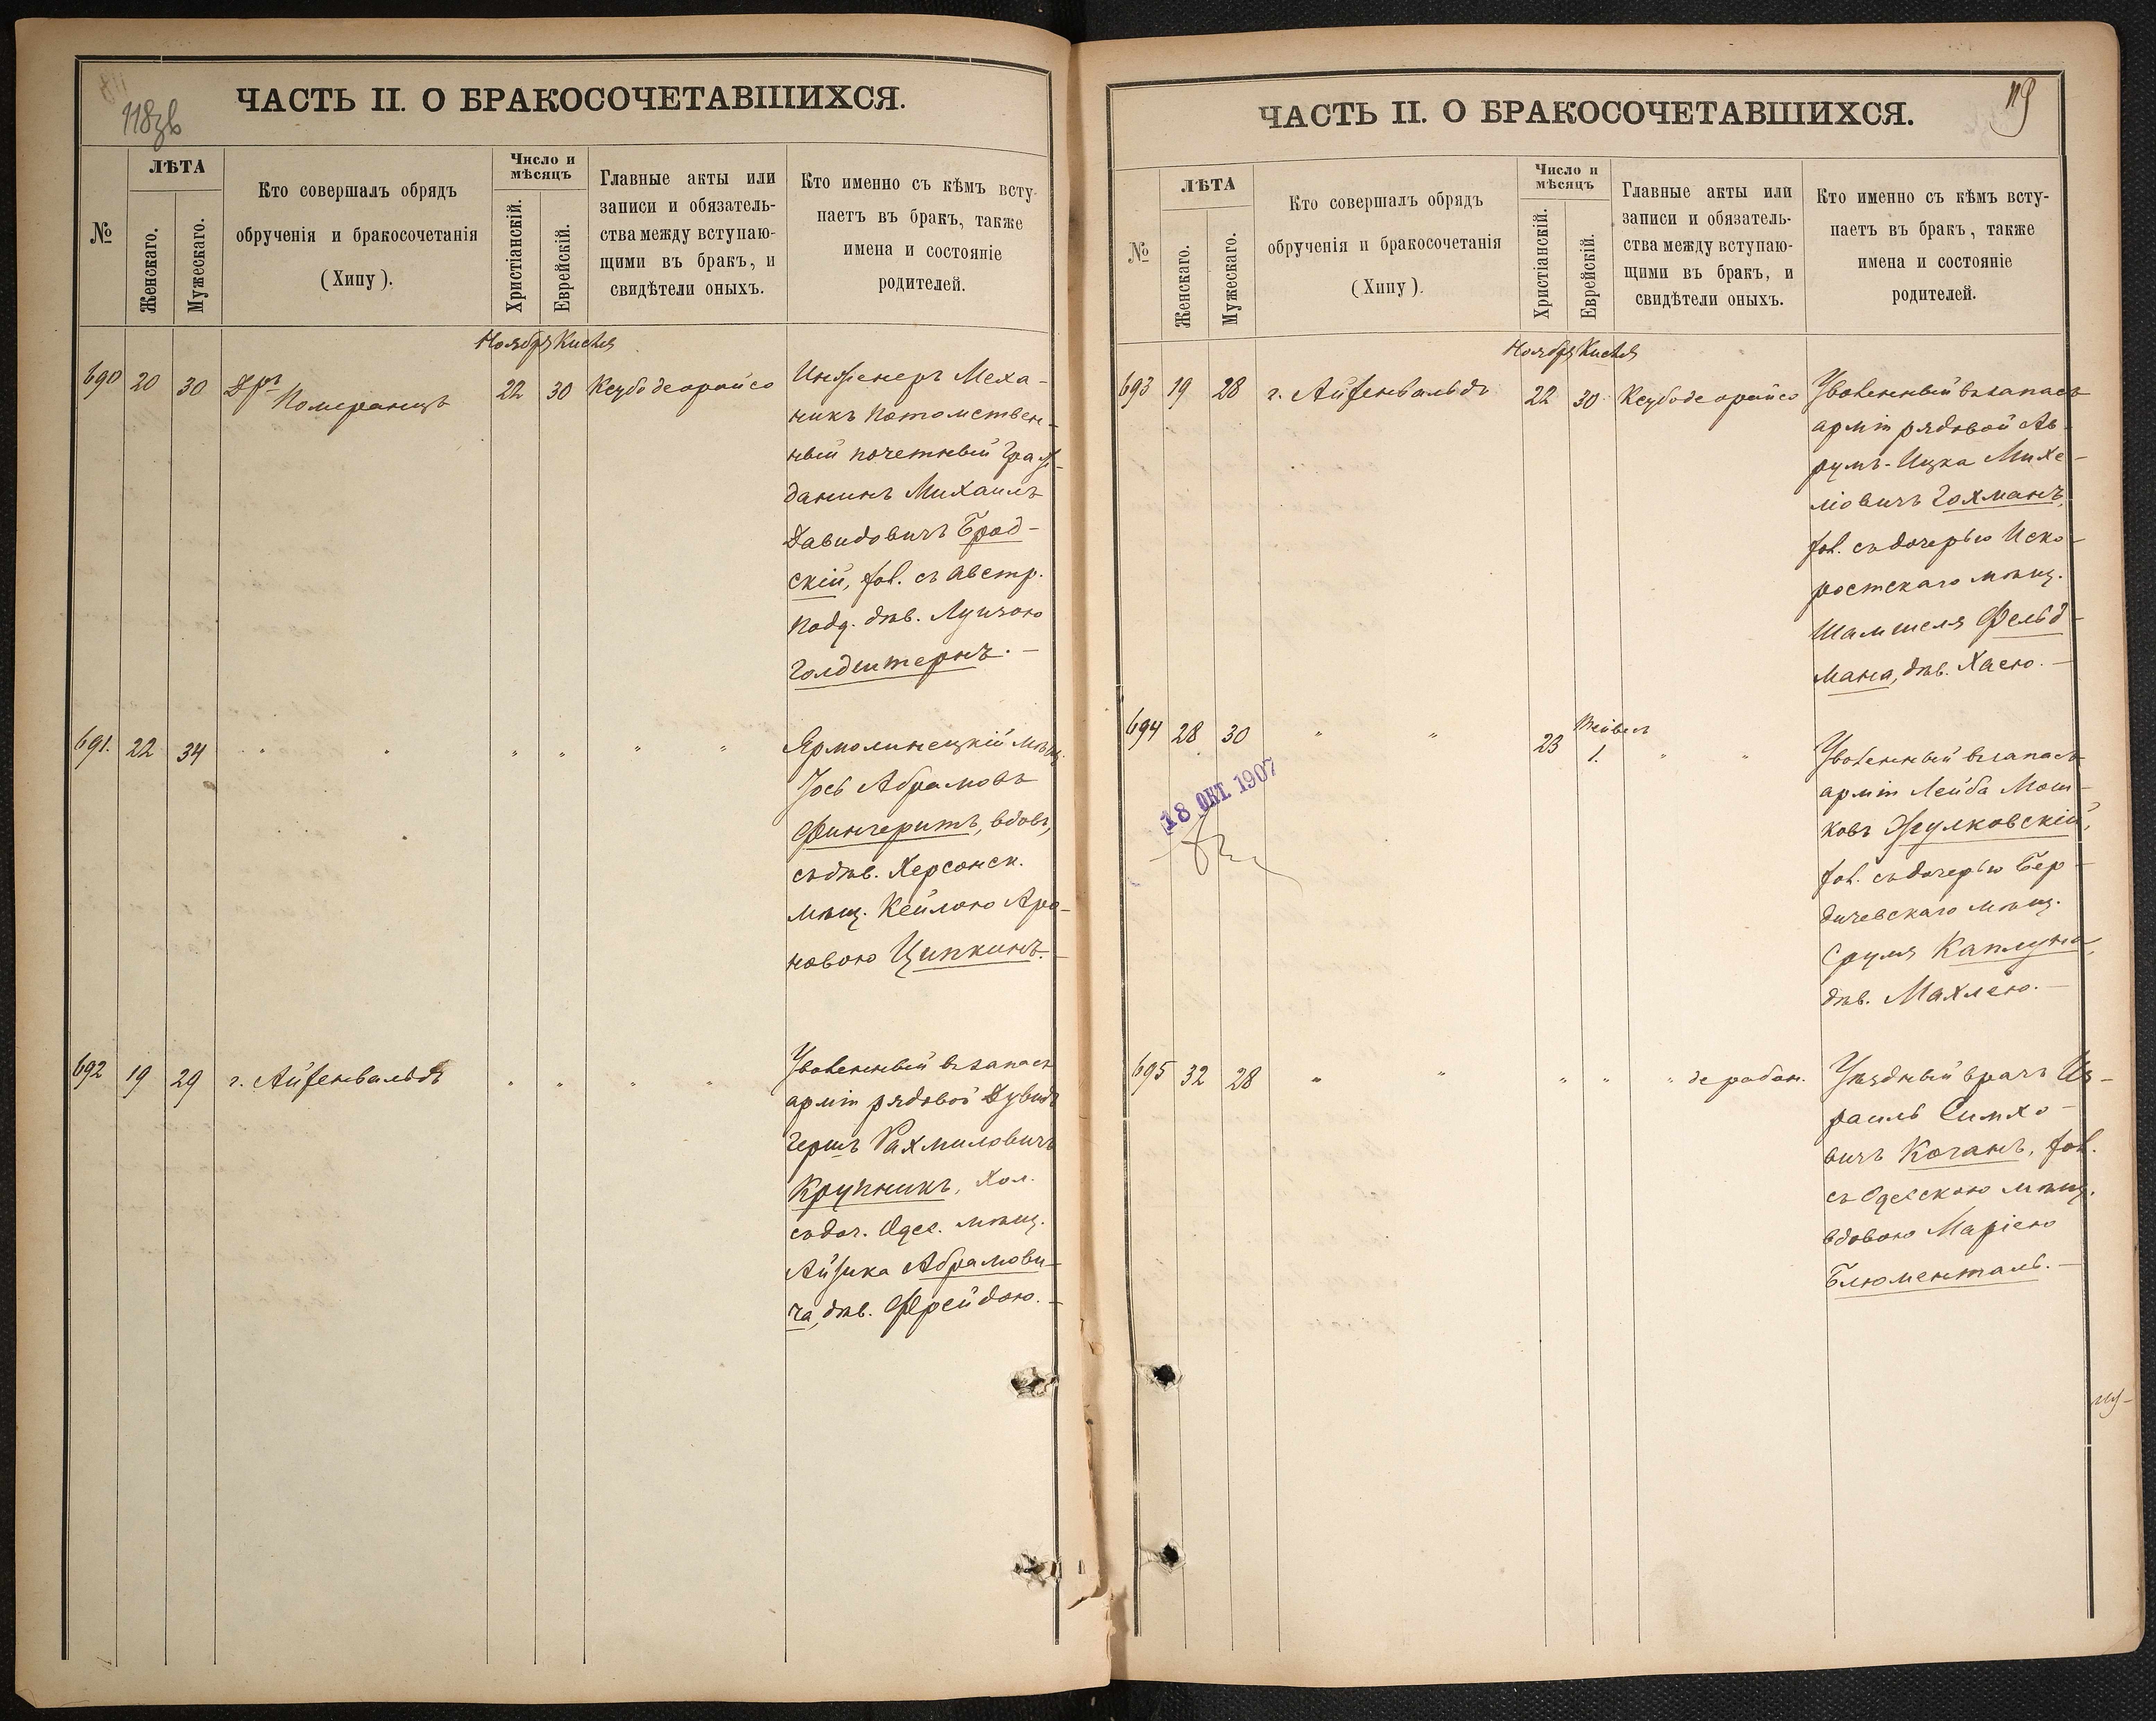 118зв
ЧАСТЬ II. О БРАКОСОЧЕТАВШИХСЯ.
№
ЛѢТА
Женскаго.
Мужескаго.
Кто совершалъ обрядъ
обрученія и бракосочетанія
(Хипу).
Число и
мѣсяцъ
Христіанскій.
Еврейскій.
Главные акты или
записи и обязатель-
ства между вступаю-
щими въ бракъ, и
свидѣтели оныхъ.
Кто именно съ кѣмъ всту-
паетъ въ бракъ, также
имена и состояніе
родителей.
Ноябр Кислев
690 20 30 Дръ Померанцъ 22 30 Ксубо деорайсо
Инженеръ Меха-
никъ Потомствен-
ный почетный Граж-
данинъ Михаилъ
Давидовичъ Брод-
скій, хол. съ Австр.
подд. дѣв. Луизою
Голдштернъ.-
691. 22 34 " " " " " "
Ярмолинецкій мѣщ.
Іось Абрамовъ
Фингеритъ, вдов.,
съ дѣв. Херсонск.
мѣщ. Кейлою Аро-
новою Ципкинъ.-
692 19 29 г. Айзенвальдъ " " " "
Уволенный въ запасъ
арміи рядовой Дувидъ
Гершъ Рахмиловичъ
Крупникъ, хол.
съ доч. Одес. мѣщ.
Айзика Абрамови-
ча, дѣв. Фрейдою.-
119
ЧАСТЬ II. О БРАКОСОЧЕТАВШИХСЯ.
№
ЛѢТА
Женскаго.
Мужескаго.
Кто совершалъ обрядъ
обрученія и бракосочетанія
(Хипу).
Число и
мѣсяцъ
Христіанскій.
Еврейскій.
Главные акты или
записи и обязатель-
ства между вступаю-
щими въ бракъ, и
свидѣтели оныхъ.
Кто именно съ кѣмъ всту-
паетъ въ бракъ, также
имена и состояніе
родителей.
Ноябр Кислев
693 19 28 г. Айзенвальдъ 22 30 Ксубо деорайсо
Уволенный въ запасъ
арміи рядовой Ав-
румъ-Ицка Михе-
ліовичъ Гохманъ,
хол. съ дочерью Иско-
ростскаго мѣщ.
Шамшеля Фельд-
мана, дѣв. Хаею.-
694 28 30 " " 23 Тейвесъ 1. " "
18 ОКТ. 1907
Уволенный въ запасъ
арміи Лейба Мош-
ковъ Жулковскій,
хол. съ дочерью Бер-
дичевскаго мѣщ.
Сруля Каплуна,
дѣв. Махлею.-
695 32 28 " " " " " дерабон.
Уѣздный врачъ Из-
раиль Симхо-
вичъ Коганъ, хол.
съ Одесскою мѣщ.
вдовою Маріею
Блюменталь.-